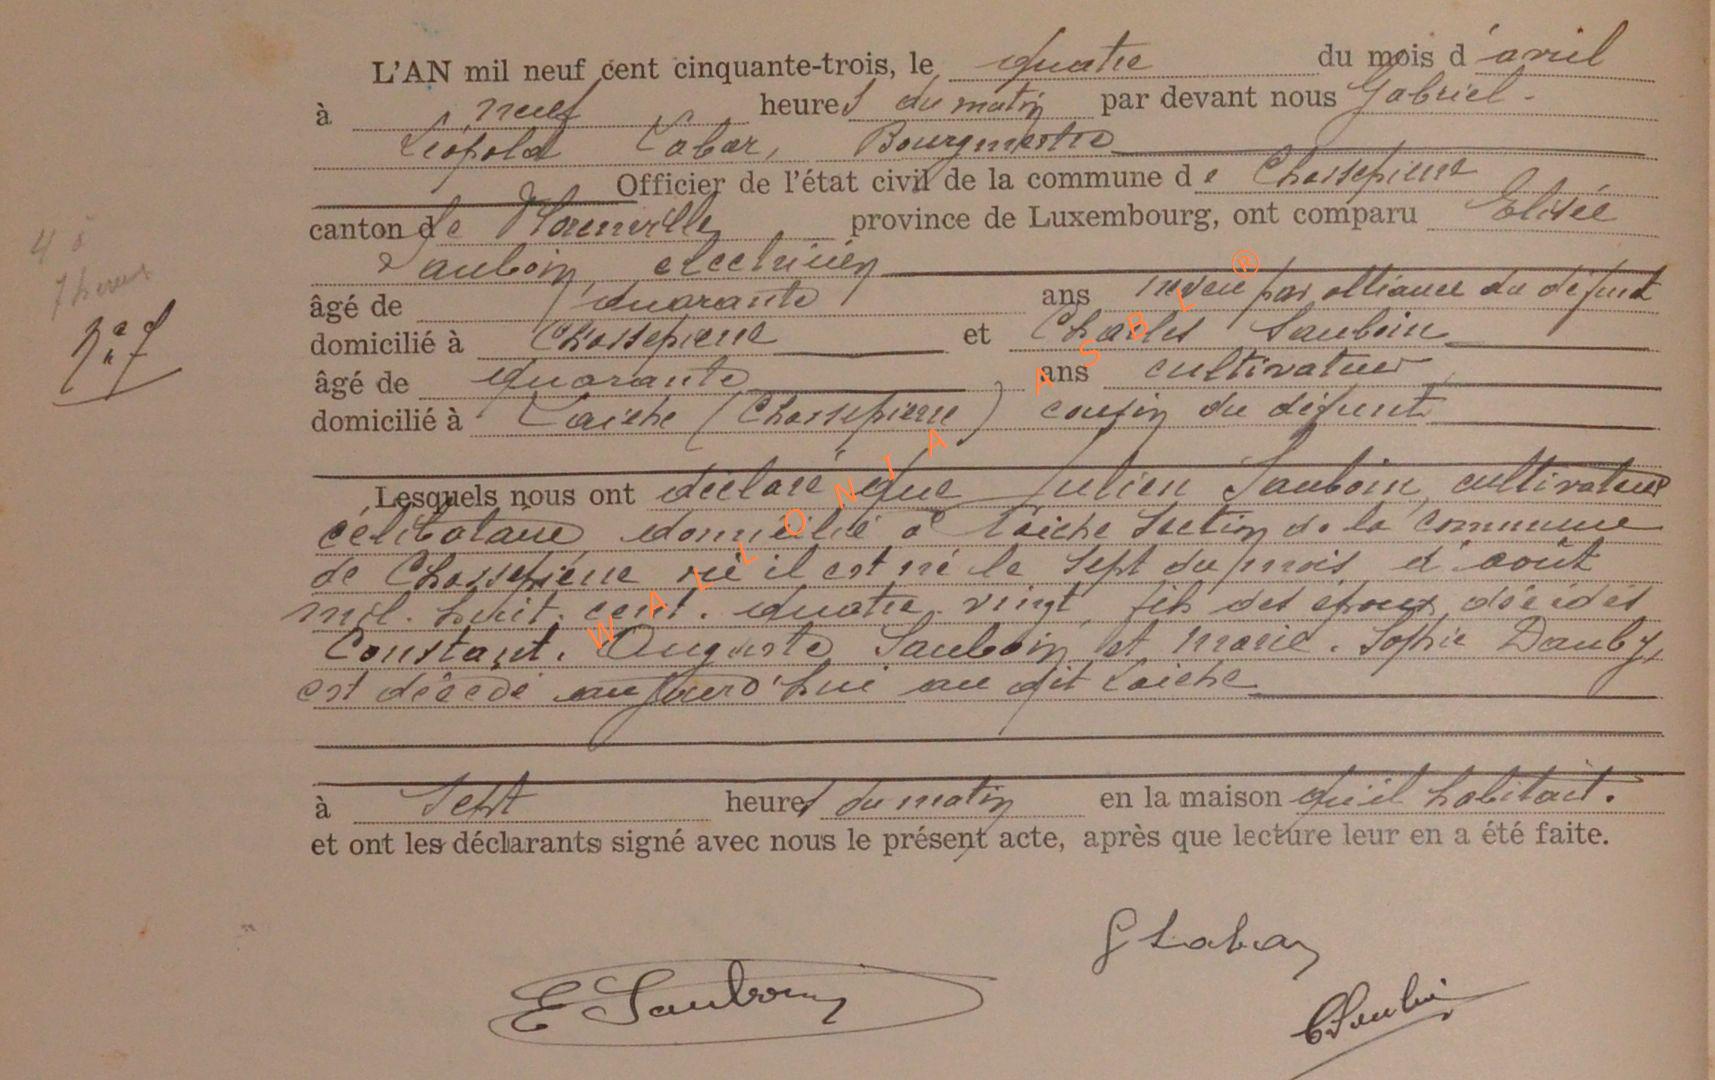 L'AN mil neuf cent cinquante-trois, le quatre du mois d'avril
à neuf heures du matin par devant nous Gabriel-
Léopold Labar, Bourgmestre
Officier de l'état civil de la commune de Chassepierre
canton de Florenville province de Luxembourg, ont comparu Elisée
Sauboin, électricien
âgé de quarante ans neveu par alliance du défunt
domicilié à Chassepierre et Charles Sauboin
âgé de quarante ans cultivateur
domicilié à Laiche (Chassepierre) cousin du défunt
Lesquels nous ont déclaré que Julien Sauboin, cultivateur
célibataire, domicilié à Laiche section de la commune
de Chassepierre où il est né le sept du mois d'août
mil-huit-cent-quatre-vingt, fils des époux décédés
Constant-Auguste Sauboin et Marie-Sophie Dauby,
est décédé aujourd'hui au dit Laiche
à sept heures du matin en la maison qu'il habitait.
et ont les déclarants signé avec nous le présent acte, après que lecture leur en a été faite.
4 à
7 heures
N° 7
G Labar
E Sauboin
C Sauboin
WALLONIA ASBL ®